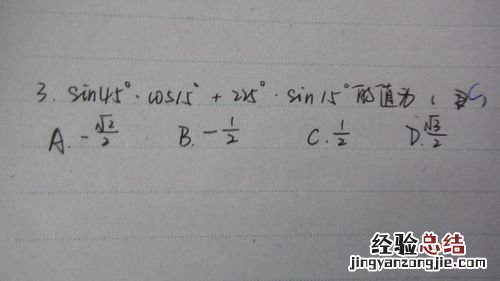 3. sin45°·cos15° + 225°·sin15°的值为( C )
A. -√2/2 B. -1/2 C. 1/2 D. √3/2
经验总结
jingyanzongjie.com